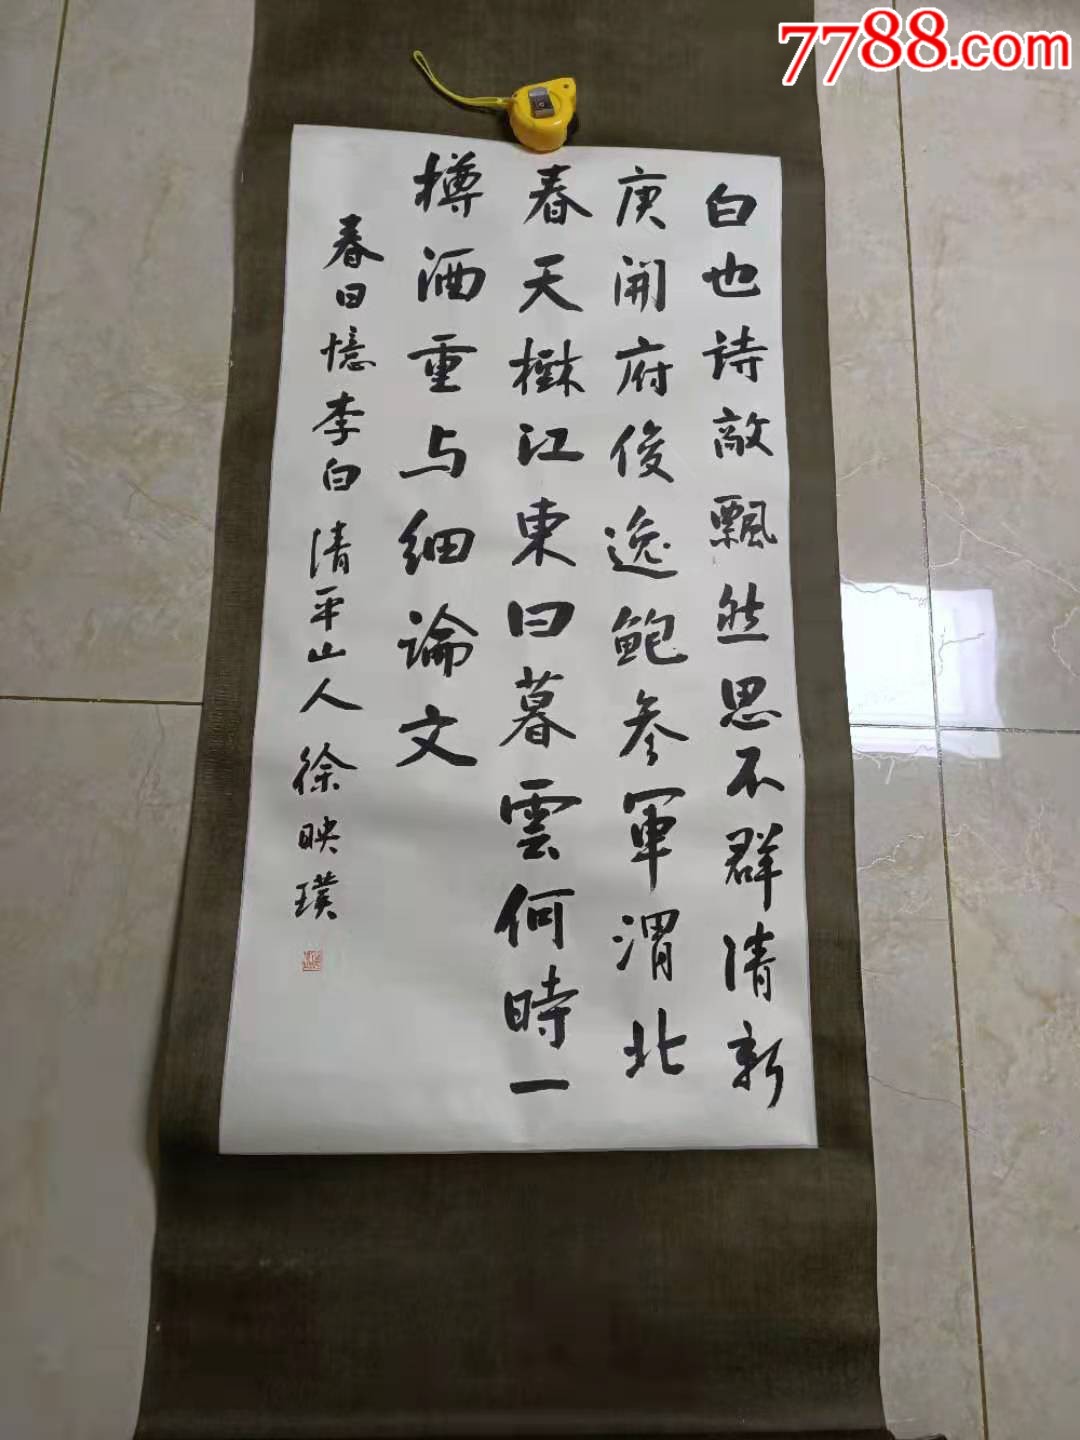 7788.com
白也詩敵飄然思不群清新
庾開府俊逸鮑参軍渭北
春天樹江東日暮雲何時一
樽酒重与細論文
春日憶李白 清平山人 徐映璞